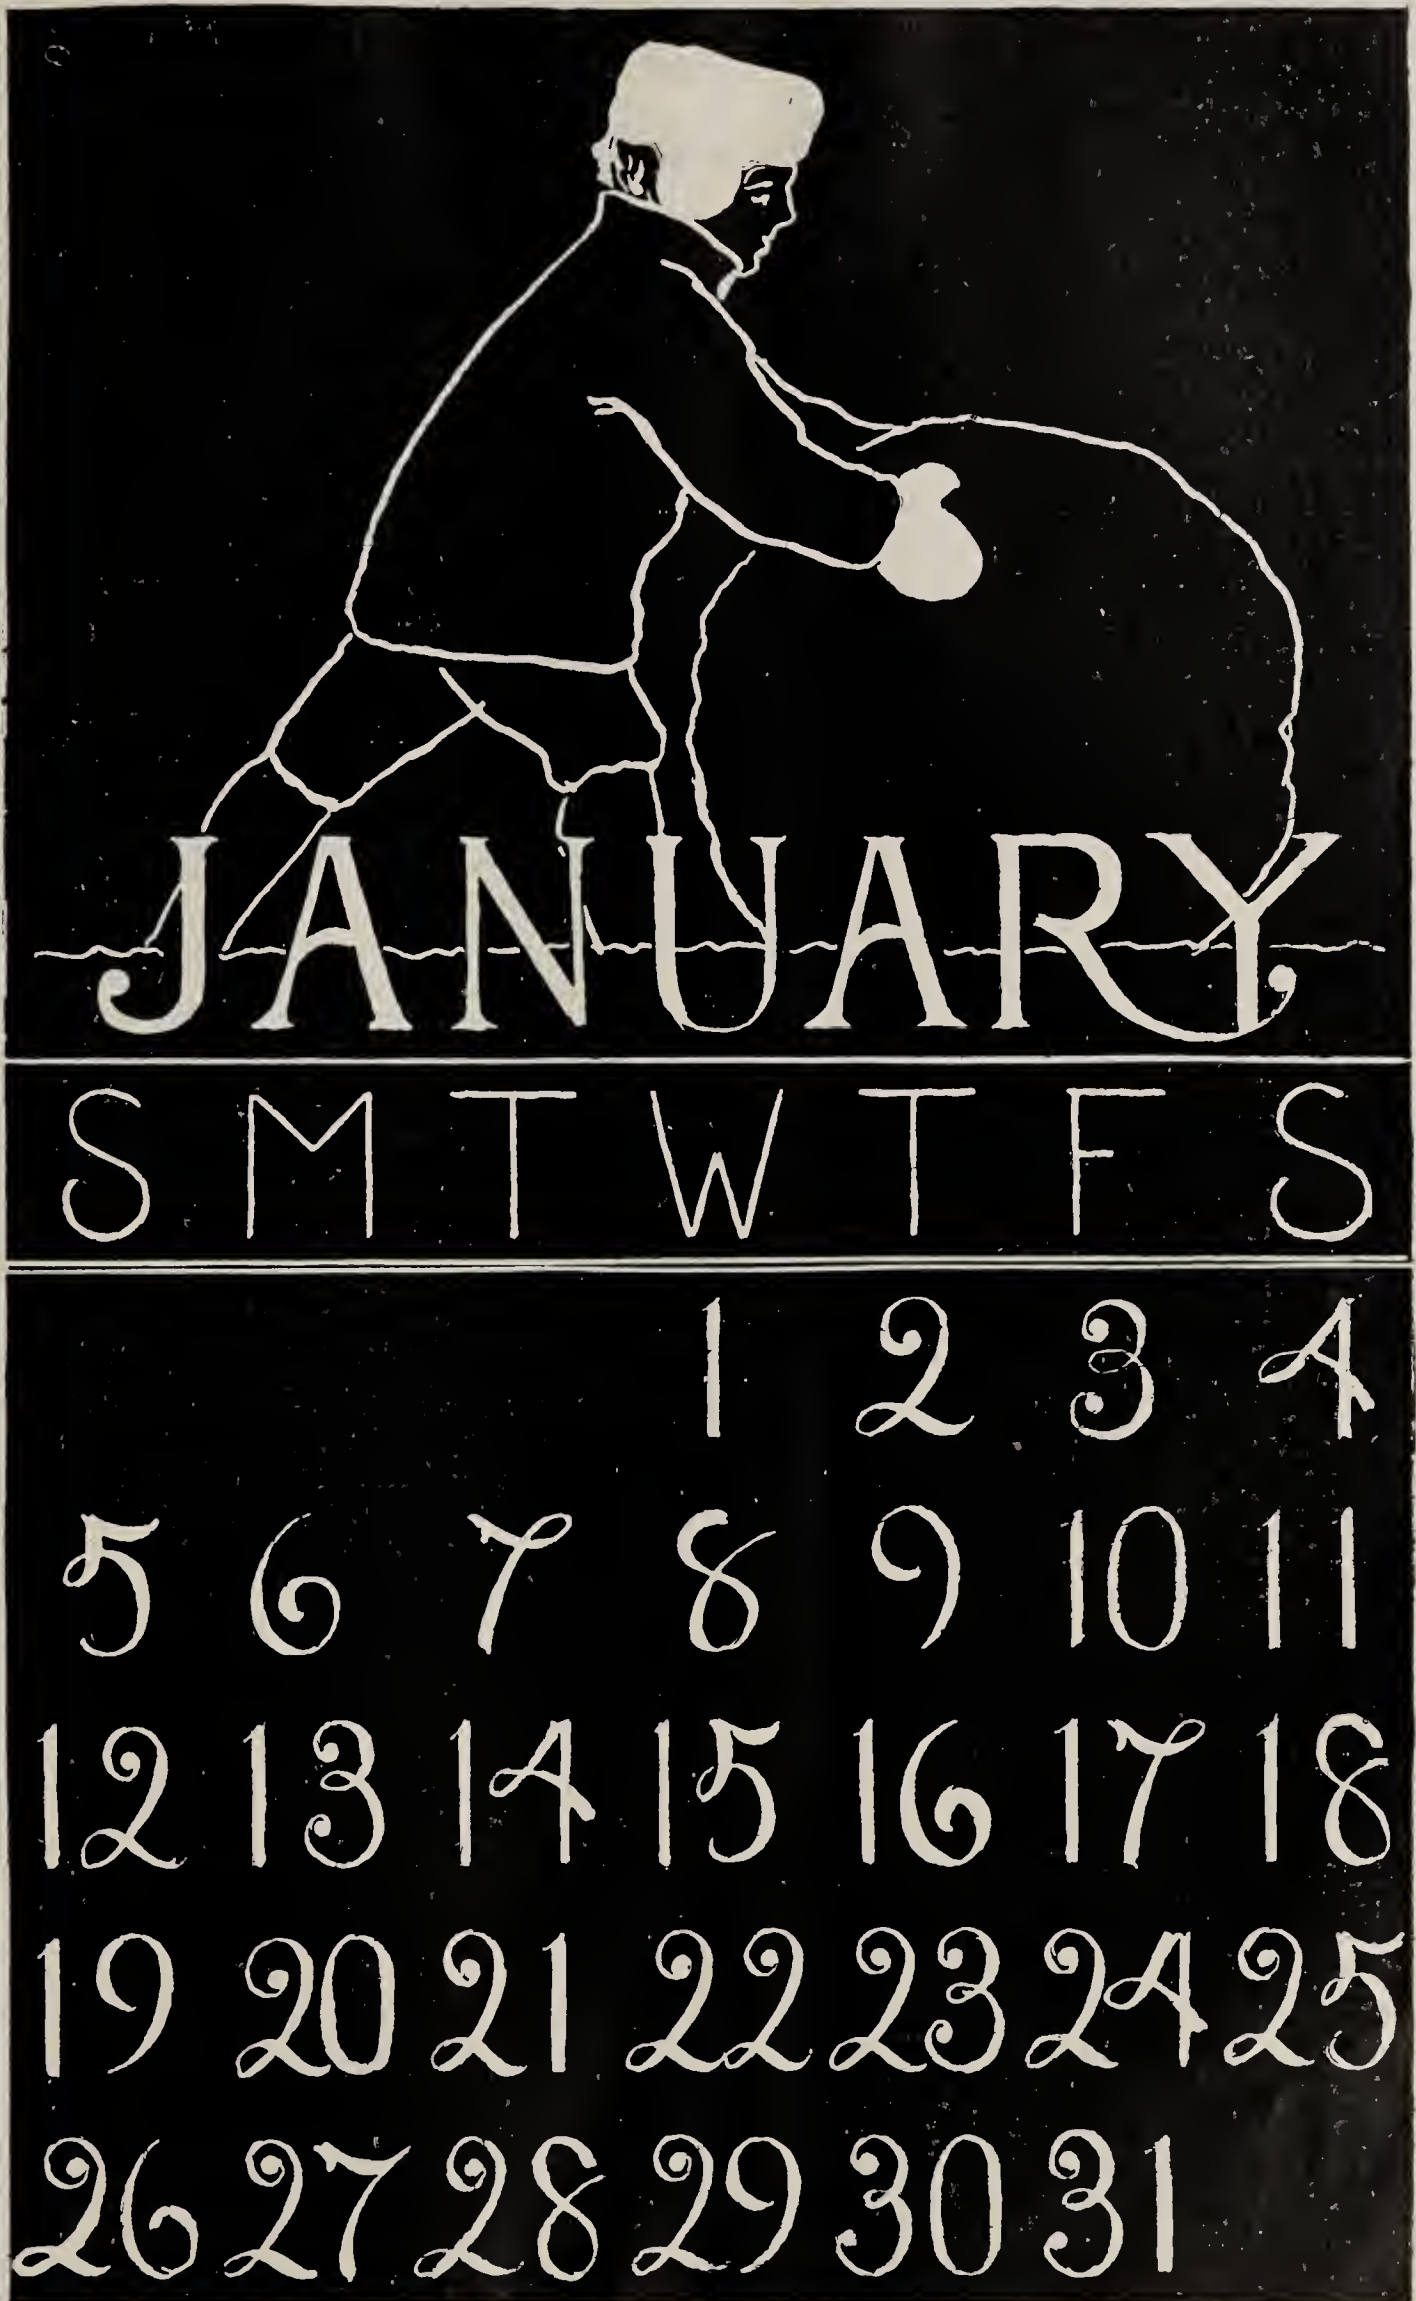 JANUARY
S M T W T F S
1 2 3 4
5 6 7 8 9 10 11
12 13 14 15 16 17 18
19 20 21 22 23 24 25
26 27 28 29 30 31